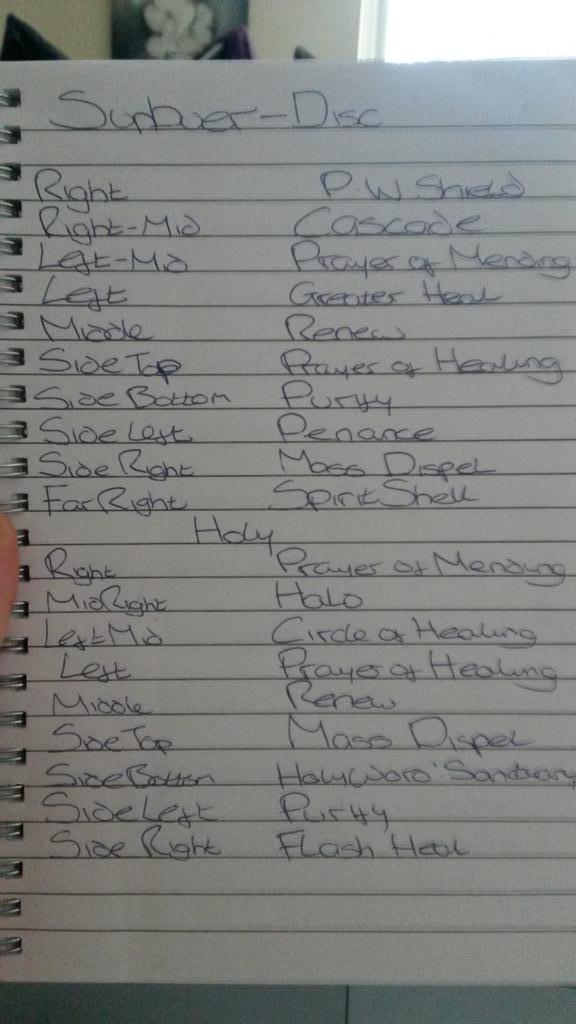 Disc
Right P.W Shield
Right-Mid Cascade
Left-Mid Prayer of Mending
Left Greater Heal
Middle Renew
Side Top Prayer of Healing
Side Bottom Purify
Side Left Penance
Side Right Mass Dispel
Far Right Spirit Shell
Holy
Right Prayer of Mending
Mid Right Halo
Left Mid Circle of Healing
Left Prayer of Healing
Middle Renew
Side Top Mass Dispel
Side Bottom Holy Word: Sanctuary
Side Left Purify
Side Right Flash Heal